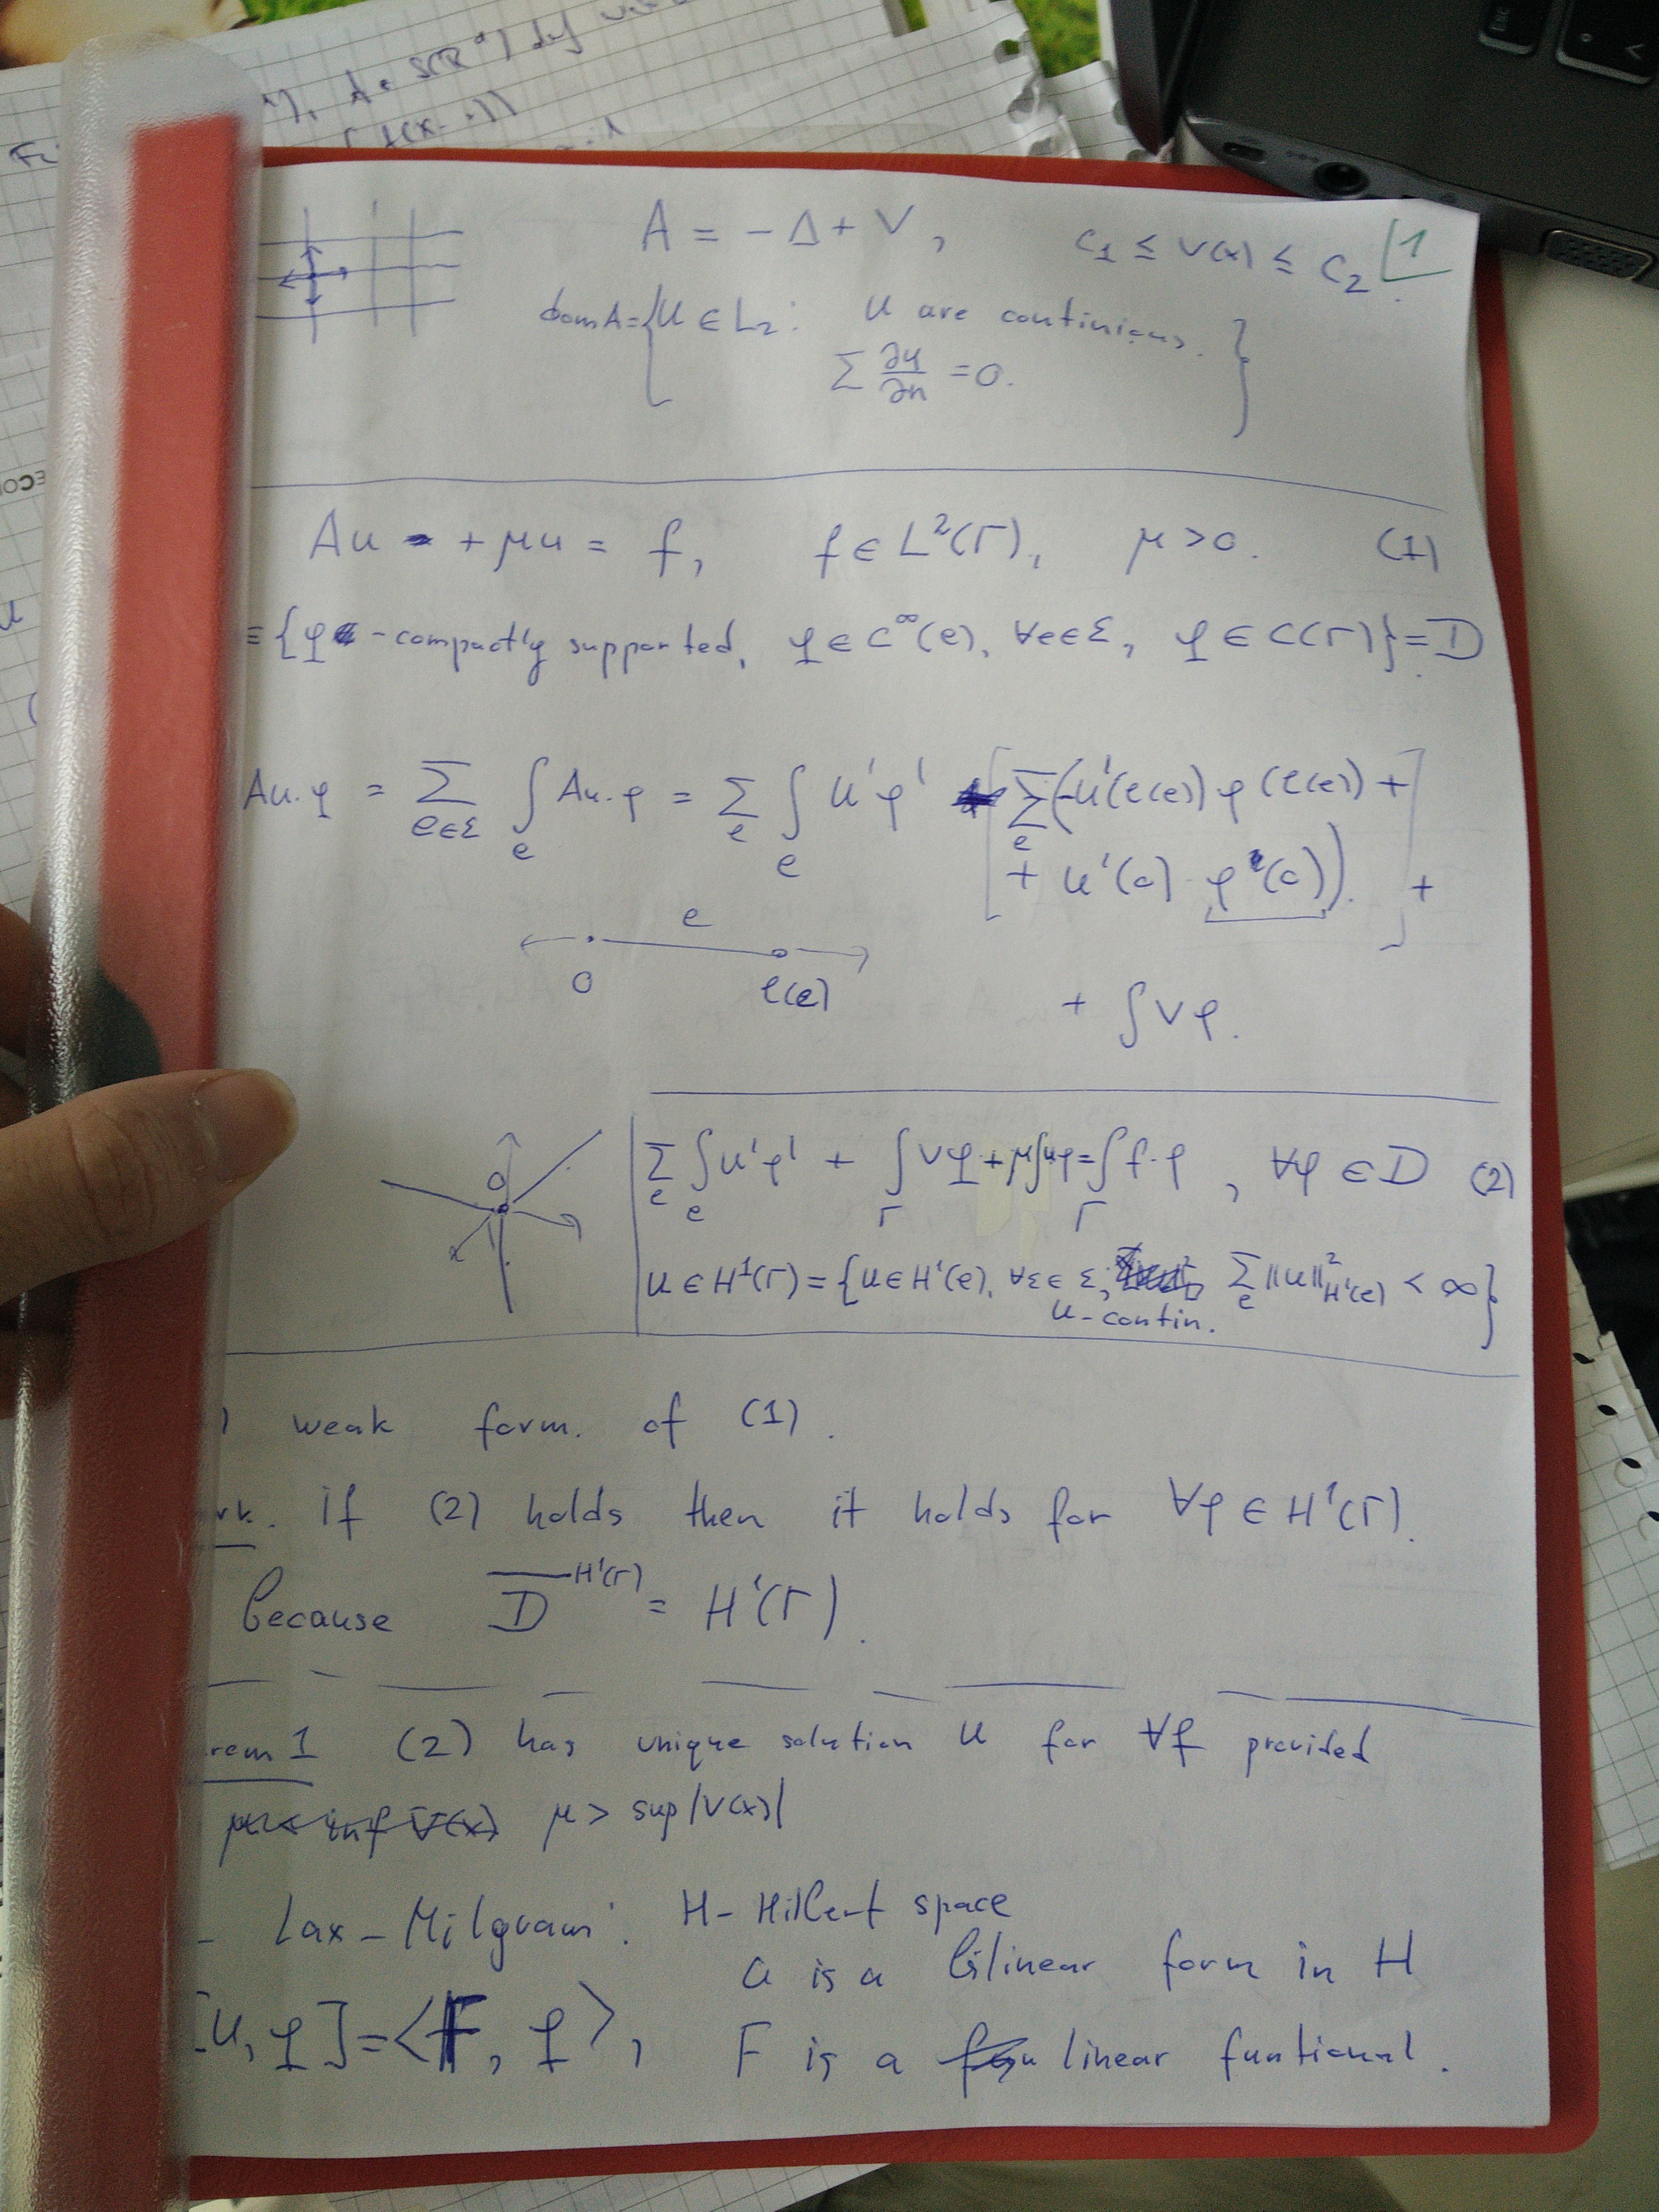 A = - Δ + V , c₁ ≤ V(x) ≤ c₂ . 1
dom A = { u ∈ L₂ : u are continious.
Σ ∂u/∂n = 0. }
Au + μu = f, f ∈ L²(Γ), μ > 0. (1)
= {φ - compactly supported, φ ∈ C^∞(e), ∀e∈Ɛ, φ ∈ C(Γ)} = D
Au·φ = Σ_{e∈Ɛ} ∫_e Au·φ = Σ_e ∫_e u'φ' [ Σ_e (-u'(ℓ(e)) φ(ℓ(e)) +
+ u'(0) · φ(0)) . ] +
e
0 ℓ(e)
+ ∫ V φ.
0
Σ_e ∫_e u'φ' + ∫_Γ Vφ + μ∫uφ = ∫_Γ f·φ , ∀φ ∈ D (2)
u ∈ H¹(Γ) = {u ∈ H¹(e), ∀Ɛ ∈ Ɛ, Σ_e ‖u‖²_{H¹(e)} < ∞}
u - contin.
) weak form. of (1).
rk. If (2) holds then it holds for ∀φ ∈ H¹(Γ).
because D̅^{H¹(Γ)} = H¹(Γ).
rem 1 (2) has unique solution u for ∀f provided
μ < inf V(x) μ > sup |V(x)|
- Lax - Milgram: H - Hilbert space
a is a bilinear form in H
[u, φ] = ⟨F, φ⟩, F is a linear funtional.